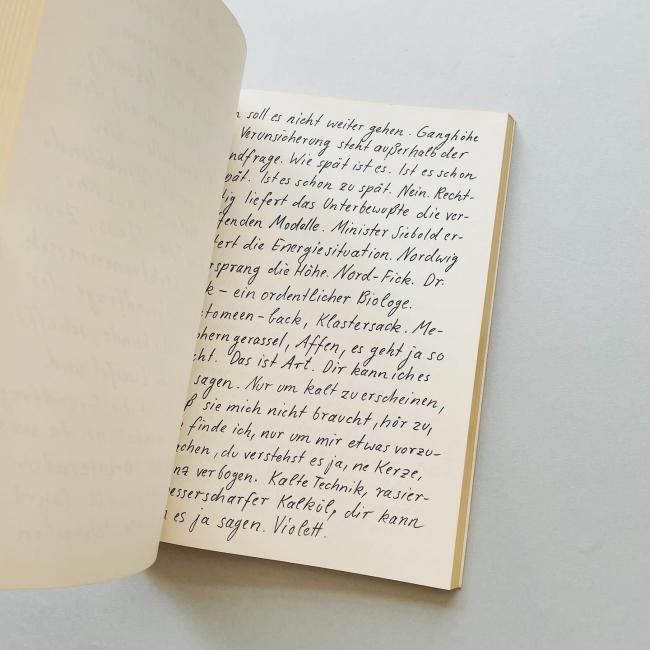 n soll es nicht weiter gehen. Ganghöhe
Verunsicherung steht außerhalb der
ndfrage. Wie spät ist es. Ist es schon
pät. Ist es schon zu spät. Nein. Recht-
ig liefert das Unterbewußte die ver-
fenden Modelle. Minister Siebold er-
tert die Energiesituation. Nordwig
rsprang die Höhe. Nord-Fick. Dr.
k – ein ordentlicher Biologe.
tomeen-back, Klastersack. Me-
phern gerassel, Affen, es geht ja so
cht. Das ist Art. Dir kann ich es
sagen. Nur um kalt zu erscheinen,
ß sie mich nicht braucht, hör zu,
finde ich, nur um mir etwas vorzu-
achen, du verstehst es ja, ne Kerze,
nz verbogen. Kalte Technik, rasier-
esserscharfer Kalkül, dir kann
es ja sagen. Violett.